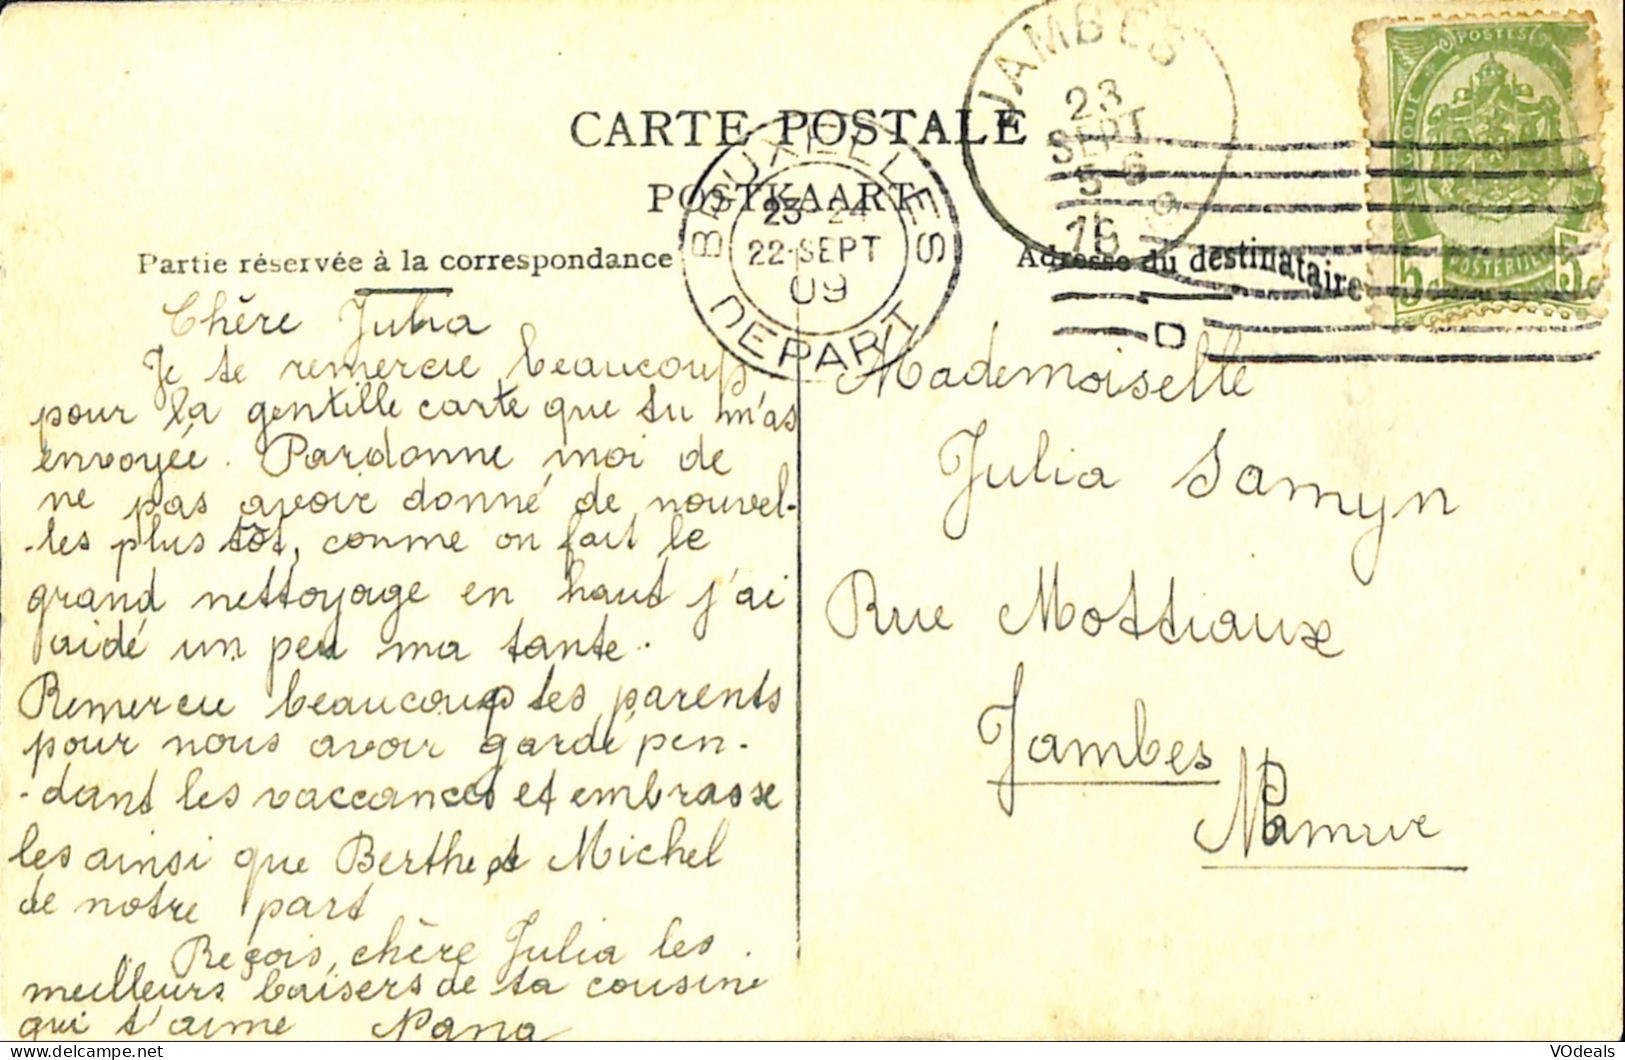 CARTE POSTALE
POSTKAART
Partie réservée à la correspondance
Adresse du destinataire
JAMBES
23
SEPT
5 6
BRUXELLES
23-24
22·SEPT
09
DEPART
POSTES
5 5
Chère Julia
Je te remercie beaucoup
pour la gentille carte que tu m'as
envoyée. Pardonne moi de
ne pas avoir donné de nouvel-
-les plus tôt, comme on fait le
grand nettoyage en haut j'ai
aidé un peu ma tante.
Remercie beaucoup tes parents
pour nous avoir gardé pen-
-dant les vaccances et embrasse
les ainsi que Berthe et Michel
de notre part
Reçois, chère Julia les
meilleurs baisers de ta cousine
qui t'aime Nana
Mademoiselle
Julia Samyn
Rue Mottiaux
Jambes
Namur
VOdeals